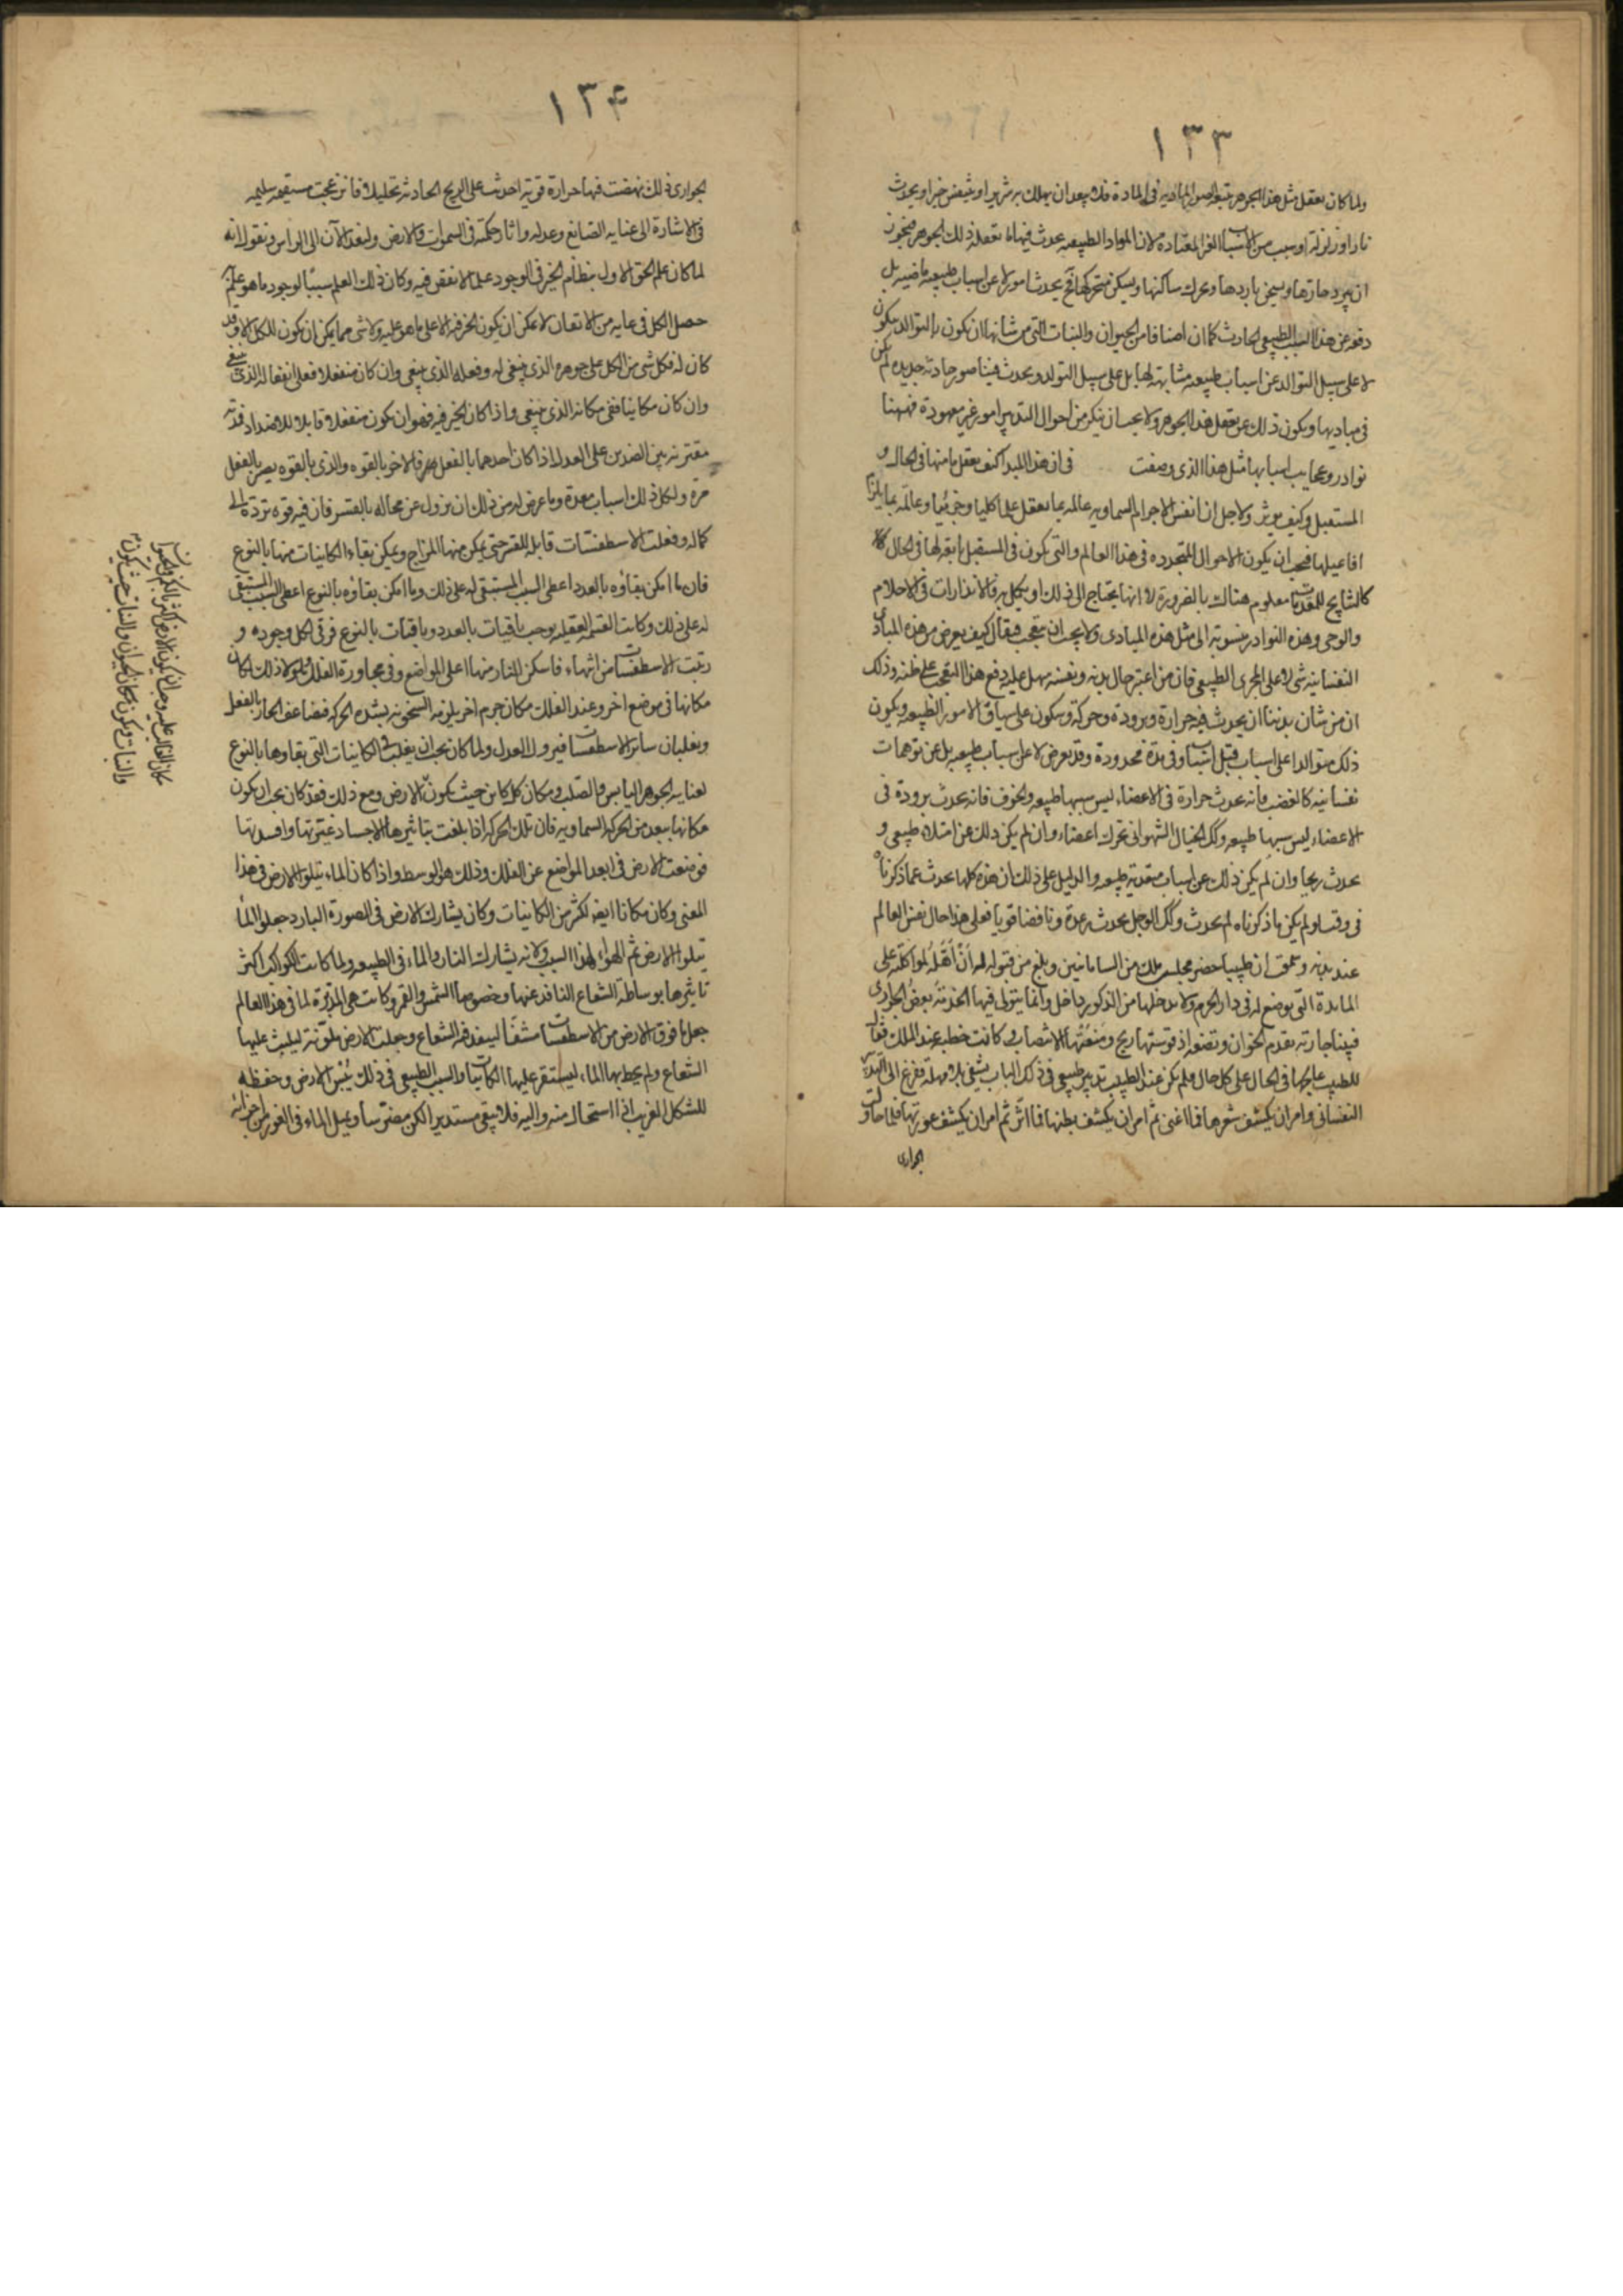 ١٣٣
ولما كان تعقل مثل هذا الجوهر يتبعه الصور المادية في المادة فلا يبعد ان يهلك به شرير او ينتعش خير او يحدث
نار او زلزلة او سبب من الاسباب الغير المعتادة لان المواد الطبيعيه يحدث فيها ما تعقله ذلك الجوهر فيجوز
ان يبرد حارها ويسخن باردها ويحرك ساكنها ويسكن متحركها فح يحدث امور لا عن اسباب طبيعيه ماضيه بل
دفعة عن هذا السبب الطبيعي الحادث كما ان اصنافا من الحيوان والنبات التي من شانها ان يكون بالتوالد يكون
لا على سبيل التوالد عن اسباب طبيعيه مشابهة لها بل على سبيل التولد ويحدث فيها صور حادثة جديده لم يكن
في مباديها ويكون ذلك عن تعقل هذا الجوهر ولا يجب ان ينكر من احوال التدبير امور غير معهودة فههنا
نوادر وعجايب اسبابها مثل هذا الذى وصفت في ان هذا المبدا كيف يعقل ما منها في الحال و
المستقبل وكيف يوثر ولاجل ان انفس الاجرام السماويه عالمه بما تعقل علما كليا وجزئيا وعالمه بما يلزم
افاعيلها فيجب ان يكون الاحوال المتجدده في هذا العالم والتي يكون في المستقبل تابعة لها في الحال
كالنتايج للمقدمات معلوم هنالك بالضرورة لا انها يحتاج الى ذلك او يكمل به فالانذارات في الاحلام
والوحي وهذه النوادر منسوبة الى مثل هذه المبادى ولا يجب ان يتعجب فيقال كيف يعرض من هذه المبادى
النفسانيه شى لا على المجرى الطبيعي فان من اعتبر حال بدنه ونفسه سهل عليه دفع هذا التعجب على ظنه وذلك
ان من شان بدننا ان يحدث فيه حرارة وبرودة وحركة وسكون على سياق الامور الطبيعيه ويكون
ذلك متوالدا على اسباب قبل اسباب وفي مدة محدودة وقد يعرض لا عن اسباب طبيعيه بل عن توهمات
نفسانيه كالغضب فانه يحدث حرارة في الاعضاء ليس سببها طبيعيه والخوف فانه يحدث برودة في
الاعضاء ليس سببها طبيعيه وكك الخيال الشهواني تحرك اعضاء وان لم يكن ذلك عن امتلاء طبيعي و
يحدث ريحا وان لم يكن ذلك عن اسباب متقدمة طبيعيه والدليل على ذلك ان هذه كلها يحدث عما ذكرناه
في وقت ولو لم يكن ما ذكرناه لم يحدث وكك الوجل يحدث رعدة ونافضا قويا فعلى هذا حال نفس العالم
عند بدنه وتحقق ان طبيبا حضر مجلس ملك من السامانيين وبلغ من قبوله له ان اهله لمواكلته على
المايدة التي يوضع له في دار الحرم ولا يدخلها من الذكور داخل وانما يتولى فيها الخدمة بعض الجواري
فبينا جارية تقدم الخوان وتضعه اذ قوستها ريح ومنعتها الانتصاب وكانت حظية عند الملك فقال
للطبيب عالجها في الحال على كل حال فلم يكن عند الطبيب تدبير طبيعي في ذلك الباب يشفي بلا مهلة ففزع الى التدبير
النفساني وامر ان يكشف شعرها فما اغنى ثم امر ان يكشف بطنها فما اثر ثم امر ان يكشف عورتها فلما حاولت
الجواري
١٣٤
الجواري ذلك نهضت فيها حرارة قوية احدثت على الريح الحادثة تحليلا فانزعجت مستقيمه سليمه
في الاشارة الى عناية الصانع وعدله واثار حكمته في السموات والارض ولنعد الان الى الراس فنقول انه
لما كان علم الحق الاول بنظام الخير في الوجود علما لا نقص فيه وكان ذلك العلم سببا لوجود ما هو علم به
حصل الكل في غايه من الاتقان لا يمكن ان يكون الخير فيه الا على ما هو عليه ولا شى مما يمكن ان يكون للكل الا وقد
كان له فكل شى من الكل على جوهره الذى ينبغي له وفعله الذى ينبغي وان كان منفعلا فعلى انفعاله الذى ينبغي
وان كان مكانيا ففي مكانه الذى ينبغي واذا كان الخير فيه فهو ان يكون منفعلا قابلا للاضداد فمدته
مقترنه بين الضدين على العدل اذا كان احدهما بالفعل فالاخر بالقوه والذى بالقوه يصير بالفعل
مرة ولكل ذلك اسباب معدة وما عرض له من ذلك ان يزول عن مجاله بالقسر فان فيه قوة تردة الى
كماله وفعلت الاسطقسات قابله للقسر حتى يمكن منها المزاج ويمكن بقاء الكاينات منها بالنوع
فان ما امكن بقاؤه بالعدد اعطى السبب المستبقى له على ذلك وما امكن بقاؤه بالنوع اعطى السبب المستبقى
له على ذلك وكانت القسمه العقليه توجب باقيات بالعدد وباقيات بالنوع فوقى الكل وجوده و
رتبت الاسطقسات مراتبها فاسكن النار منها اعلى المواضع وفي مجاورة الفلك ولولا ذلك لكان
مكانها في موضع اخر وعند الفلك مكان جرم اخر يلزمه السخونه بشده الحركه فتضاعف الحار بالفعل
ويغلبان ساير الاسطقسات فيزول العدل ولما كان يجب ان يغلب في الكاينات التي بقاوها بالنوع
لعنايه الجوهر اليابس والصلب ومكان كل كاين حيث يكون الارض ومع ذلك فقد كان يجب ان يكون
مكانها بعيد من الحركه السماويه فان تلك الحركه اذا بلغت بتاثيرها الاجساد غيرتها وافسدتها
فوضعت الارض في ابعد المواضع عن الفلك وذلك هو الوسط واذا كان الماء يتلو الارض في هذا
المعنى وكان مكانا ايضا لكثير من الكاينات وكان يشارك الارض في الصورة الباردة جعل الماء
يتلو الارض ثم الهواء لهذا السبب ولانه يشارك النار والماء في الطبيعه ولما كانت الكواكب اكثر
تاثيرها بوساطة الشعاع النافذ عنها وخصوصا الشمس والقمر وكانت هي المدبرة لما في هذا العالم
جعل ما فوق الارض من الاسطقسات مشفا لينفذ فيه الشعاع وجعلت الارض ملونة ليلبث عليها
الشعاع ولم يحط بها الماء ليستقر عليها الكاينات والسبب الطبيعي في ذلك يبس الارض وحفظه
للشكل الغريب اذا استحال منه واليه فلا يبقى مستديرا لكن مضرسا ويميل الماء في الغور من اجزائه
مكان الغالب عليه وجب ان يكون الارض اكثر بالكم والحيوان
والنبات ويكون مكان الحيوان والنبات حيث يكون